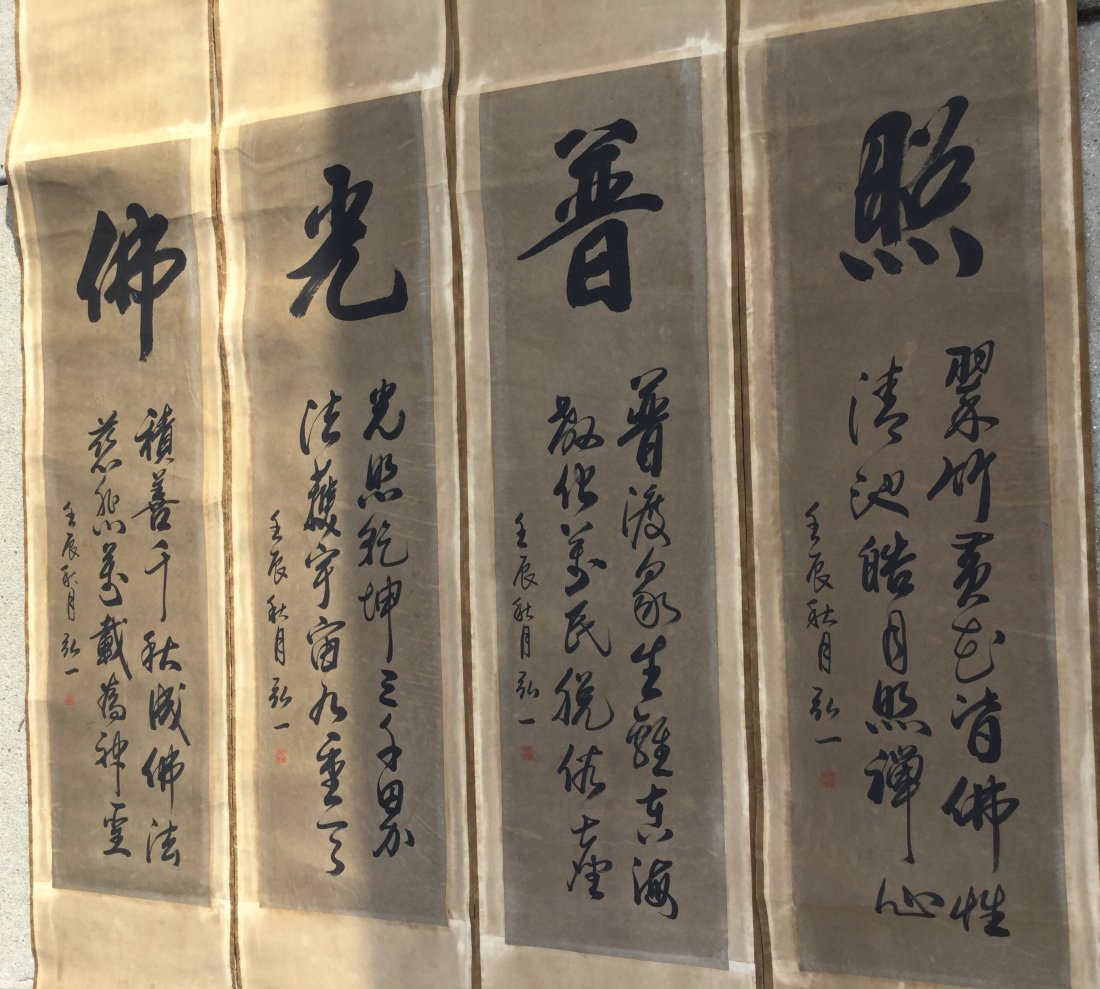 佛
積善千秋成佛法
慈悲萬載為神靈
壬辰秋月 弘一
光
光照乾坤三千界
法護宇宙九重天
壬辰秋月 弘一
普
普渡眾生離苦海
教化萬民脫俗塵
壬辰秋月 弘一
照
翠竹黃花皆佛性
清池皓月照禪心
壬辰秋月 弘一